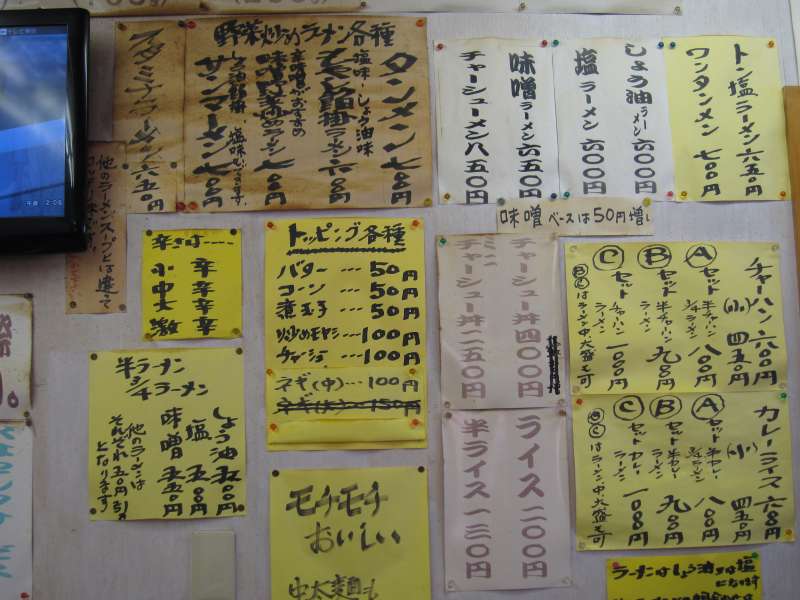 スタミナラーメン 六五〇円
他のラーメンスープとは違って
野菜炒めラーメン各種
タンメン 七〇〇円
塩味・しょう油味
サンマーメン 七〇〇円
トン塩ラーメン 六五〇円
ワンタンメン 七〇〇円
しょう油ラーメン 六〇〇円
塩ラーメン 六〇〇円
味噌ラーメン 六五〇円
チャーシューメン 八五〇円
味噌ベースは50円増し
小 辛
中 辛
大 辛
激 辛
トッピング各種
バター…50円
コーン…50円
煮玉子…50円
炒めモヤシ…100円
チャーシュー…100円
ネギ(中)…100円
ネギ(大)…150円
チャーシュー丼 四〇〇円
ミニチャーシュー丼 二五〇円
ライス 二〇〇円
半ライス 一三〇円
チャーハン 六〇〇円
(小) 四五〇円
Aセット 半チャーハン 3/4ラーメン 八〇〇円
Bセット 半チャーハン ラーメン 九〇〇円
Cセット チャーハン ラーメン 一〇〇〇円
BCはラーメン中大盛も可
カレーライス 六〇〇円
(小) 四五〇円
Aセット 半カレー 3/4ラーメン 八〇〇円
Bセット 半カレー ラーメン 九〇〇円
Cセット カレー ラーメン 一〇〇〇円
BCはラーメン中大盛も可
半ラーメン
3/4ラーメン
しょう油 五〇〇円
塩 五〇〇円
味噌 五五〇円
他のラーメンは
それぞれ五〇円引き
となります
モチモチ
おいしい
中太麺も
ラーメンはしょう油又は塩
になります
午後 2:06